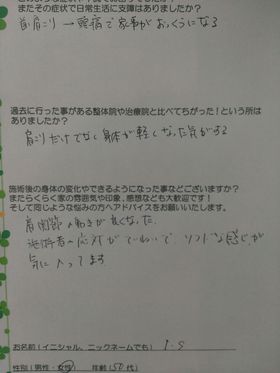 またその症状で日常生活に支障はありましたか？
首肩こり → 頭痛で家事がおっくうになる
過去に行った事がある整体院や治療院と比べてちがった！という所は
ありましたか？
肩こりだけでなく身体が軽くなった気がする
施術後の身体の変化やできるようになった事などございますか？
またらくらく家の雰囲気や印象、感想なども大歓迎です！
そして同じような悩みの方へアドバイスをお願いいたします。
肩関節の動きが良くなった。
施術者の応対がていねいで、ソフトな感じが
気に入ってます
お名前（イニシャル、ニックネームでも） I.S
性別（男性・女性） 年齢（50代）